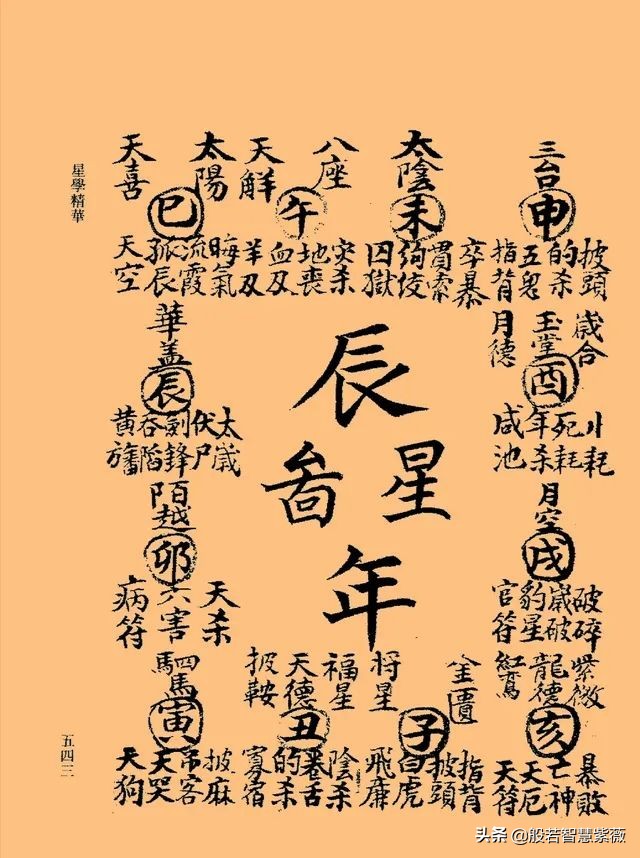 星學精華
五四三
三台
申
披頭
的杀
五鬼
指背
太陰
未
卒暴
貫索
絇絞
囚獄
八座
天解
午
灾杀
地喪
血刃
羊刃
太陽
天喜
巳
晦氣
流霞
孤辰
天空
歲合
玉堂
月德
酉
小耗
死耗
年杀
咸池
華盖
辰
太歲
伏尸
劍鋒
吞陷
黄旛
辰
年
星
啚
月空
戌
破碎
歲破
豹星
官符
陌越
卯
天杀
六害
病符
紫微
龍德
紅鸞
亥
暴敗
亡神
天厄
天符
金匱
将星
子
指背
披頭
白虎
飛廉
福星
天德
扳鞍
丑
陰杀
卷舌
的杀
寡宿
馹馬
寅
披麻
吊客
天哭
天狗
头条 @般若智慧紫薇